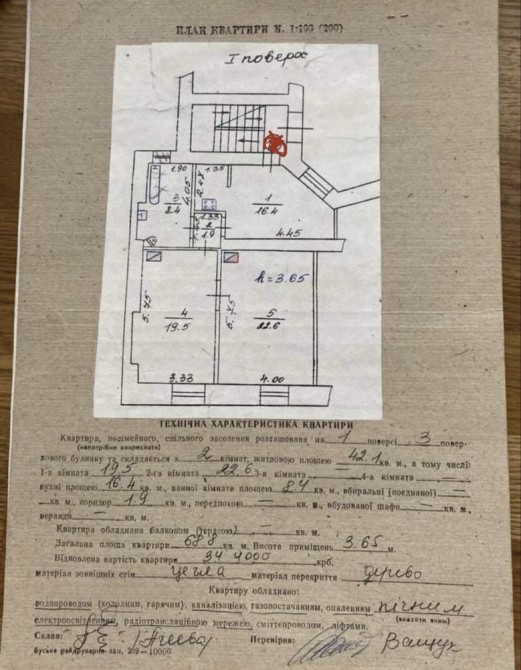 ПЛАН КВАРТИРИ М. 1:100 (200)
I поверх
1.90
1.35
2.45
4.05
3
8.4
1
16.4
1.33
2
1.9
4.45
h = 3.65
5.75
4
19.5
5.75
5
22.6
3.33
4.00
ТЕХНІЧНА ХАРАКТЕРИСТИКА КВАРТИРИ
Квартира, посімейного, спільного заселення розташована на 1 поверсі 3 повер-
(непотрібне викреслити)
хового будинку та складається з 2 кімнат, житловою площею 42.1 кв. м., а тому числі
1-а кімната 19.5 2-га кімната 22.6 3-я кімната — 4-а кімната —
кухні площею 16.4 кв. м., ванної кімнати площею 8.4 кв. м., вбиральні (поєднаної) —
— кв. м., коридор 1.9 кв. м., передпокою — кв. м., вбудованої шафи — кв. м.,
веранди — кв. м.
Квартира обладнана балконом (терасою) — кв. м.
Загальна площа квартири 68.8 кв. м. Висота приміщень 3.65 м.
Відновлена вартість квартири 344000 крб.
матеріал зовнішніх стін цегла матеріал перекриття дерево
Квартиру обладнано:
водопроводом (холодним, гарячим), каналізацією, газопостачанням, опаленням пічним
(вказати яким)
електроосвітленням, радіотрансляційною мережею, сміттепроводом, ліфтами.
Склали: Перевірив: Ващук
буська райдрукарня зам. 209—10000